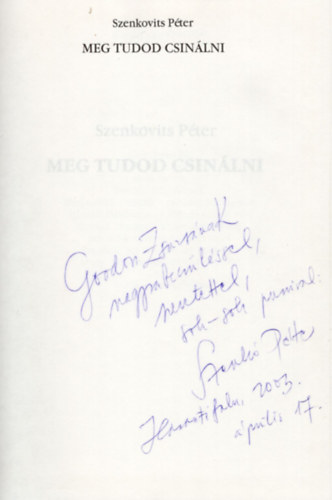 Szenkovits Péter
MEG TUDOD CSINÁLNI
Szenkovits Péter
MEG TUDOD CSINÁLNI
Gordon Zsuzsának
nagyrabecsüléssel,
szeretettel,
sok-sok puszival:
2003.
április 17.